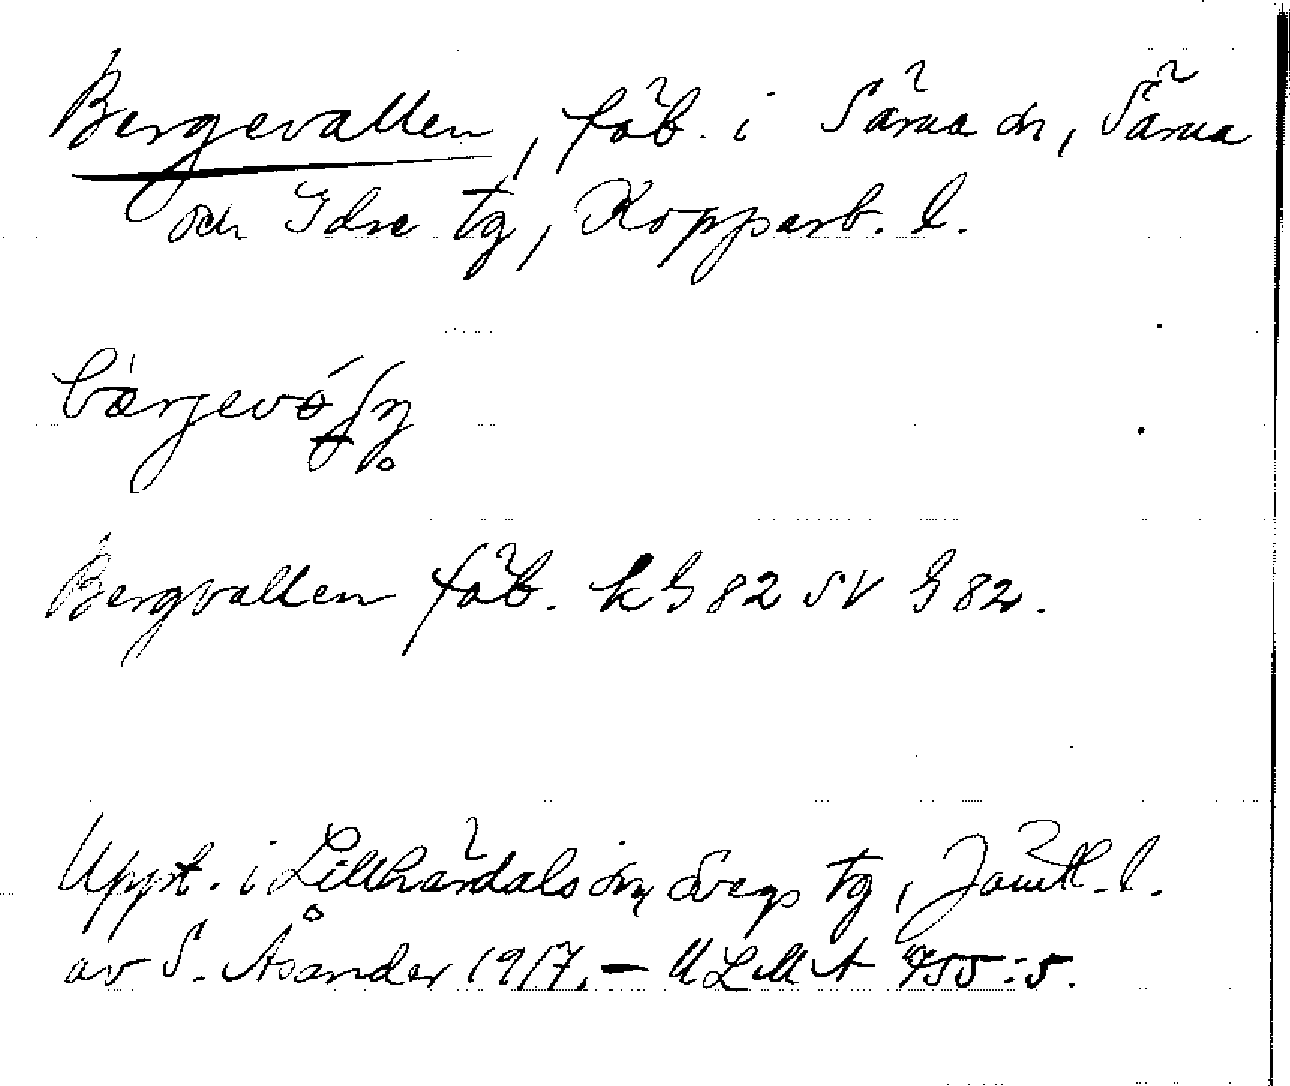 Bergevallen, fäb. i Särna sn, Särna
och Idre tg, Kopparb. l.
Bergvallen fäb. k G 82 SV G 82.
Uppt. i Lillhärdals sn, Svegs tg, Jämtl. l.
av S. Åsander 1917, – ULMA 955:5.